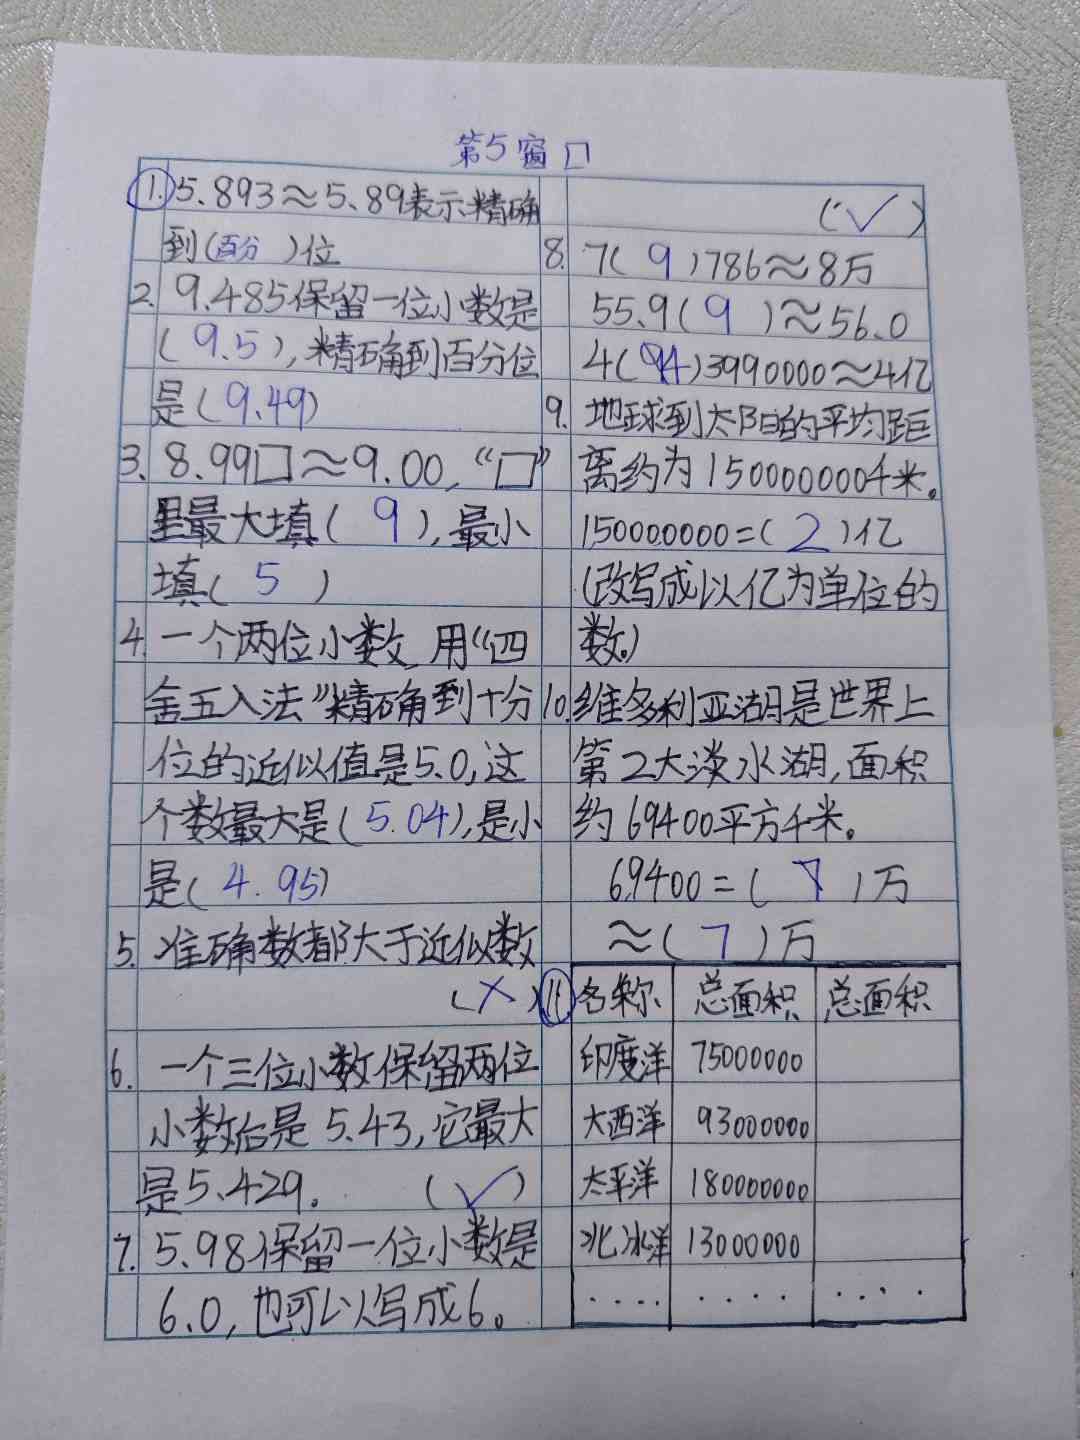 第5窗口
1. 5.893≈5.89表示精确
到(百分)位
2. 9.485保留一位小数是
(9.5),精确到百分位
是(9.49)
3. 8.99□≈9.00,“□”
里最大填(9),最小
填(5)
4. 一个两位小数 用“四
舍五入法”精确到十分
位的近似值是5.0,这
个数最大是(5.04),是小
是(4.95)
5. 准确数都大于近似数
(×)
6. 一个三位小数保留两位
小数后是5.43,它最大
是5.429。 (√)
7. 5.98保留一位小数是
6.0,也可以写成6。
(√)
8. 7(9)786≈8万
55.9(9)≈56.0
4( )3990000≈4亿
9. 地球到太阳的平均距
离约为150000000千米。
150000000=(2)亿
(改写成以亿为单位的
数。)
10. 维多利亚湖是世界上
第2大淡水湖,面积
约69400平方千米。
69400=(7)万
≈(7)万
11. 名称 总面积 总面积
印度洋 75000000
大西洋 93000000
太平洋 180000000
北冰洋 13000000
.... .... ....